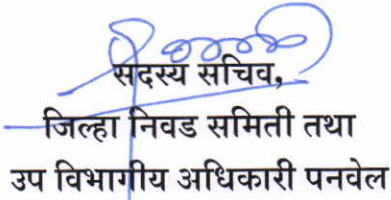 सदस्य सचिव,
जिल्हा निवड समिती तथा
उप विभागीय अधिकारी पनवेल